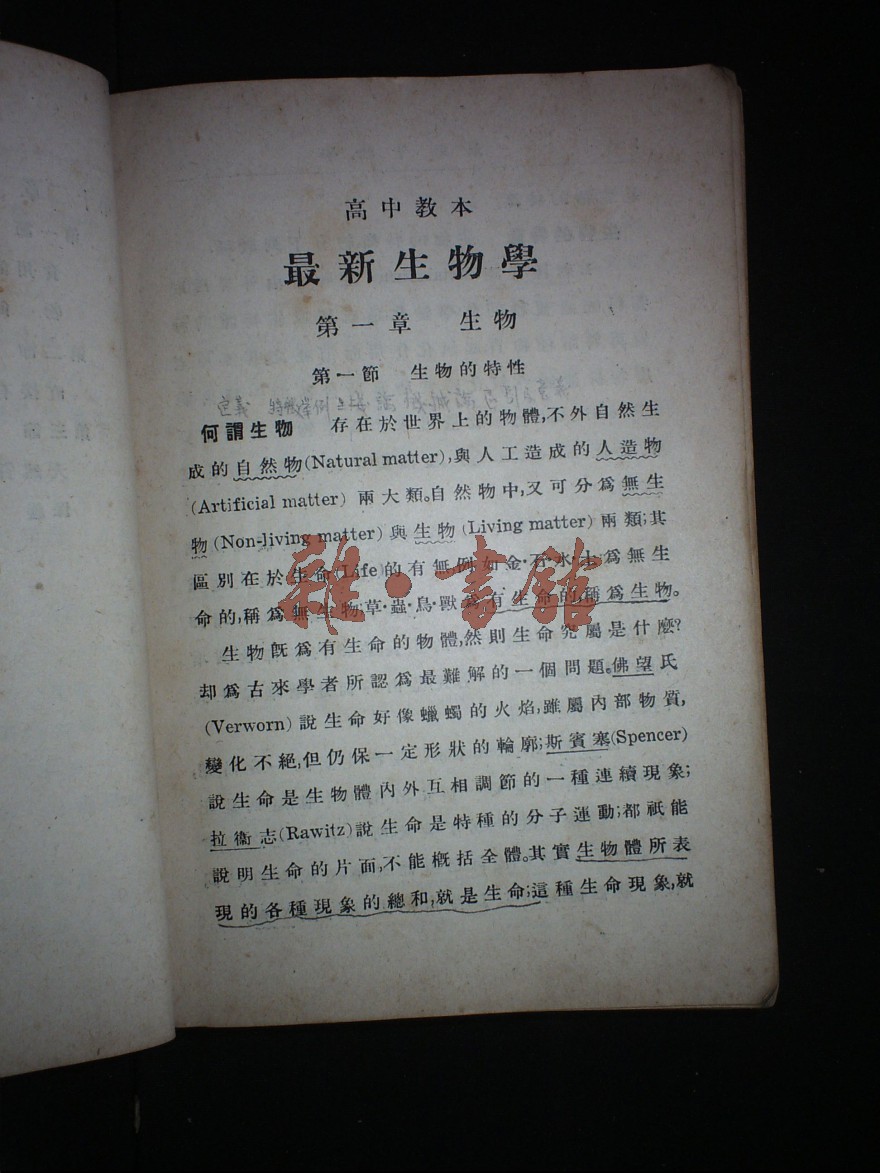 高中教本
最新生物學
第一章 生物
第一節 生物的特性
何謂生物 存在於世界上的物體,不外自然生
成的自然物(Natural matter),與人工造成的人造物
(Artificial matter)兩大類。自然物中,又可分爲無生
物(Non-living matter)與生物(Living matter)兩類;其
區別在於生命(Life)的有無,例如金·石·水·土爲無生
命的,稱爲無生物;草·蟲·鳥·獸爲有生命的,稱爲生物。
生物旣爲有生命的物體,然則生命究屬是什麽?
却爲古來學者所認爲最難解的一個問題。佛望氏
(Verworn)說生命好像蠟蠋的火焰,雖屬內部物質,
變化不絕,但仍保一定形狀的輪廓;斯賓塞(Spencer)
說生命是生物體內外互相調節的一種連續現象;
拉衞志(Rawitz)說生命是特種的分子運動;都祇能
說明生命的片面,不能槪括全體。其實生物體所表
現的各種現象的總和,就是生命;這種生命現象,就
雜·書館